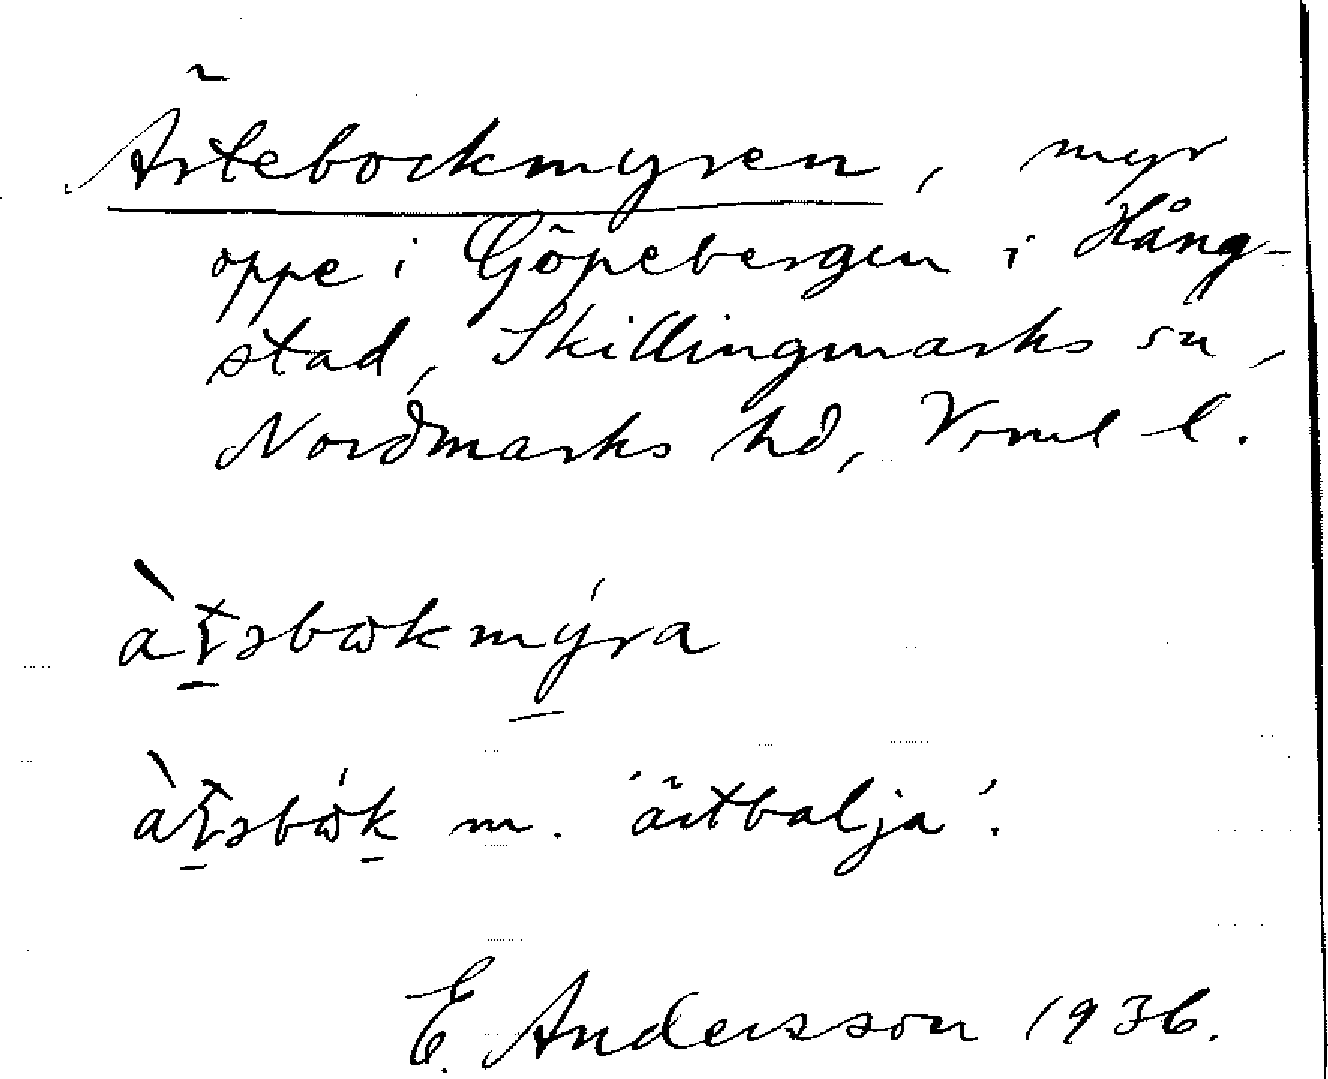 Ärtebockmyren, myr
oppe i Göpebergen i Hång-
stad, Skillingmarks sn,
Nordmarks hd, Vrml l.
m. 'ärtbalja'.
E. Andersson 1936.